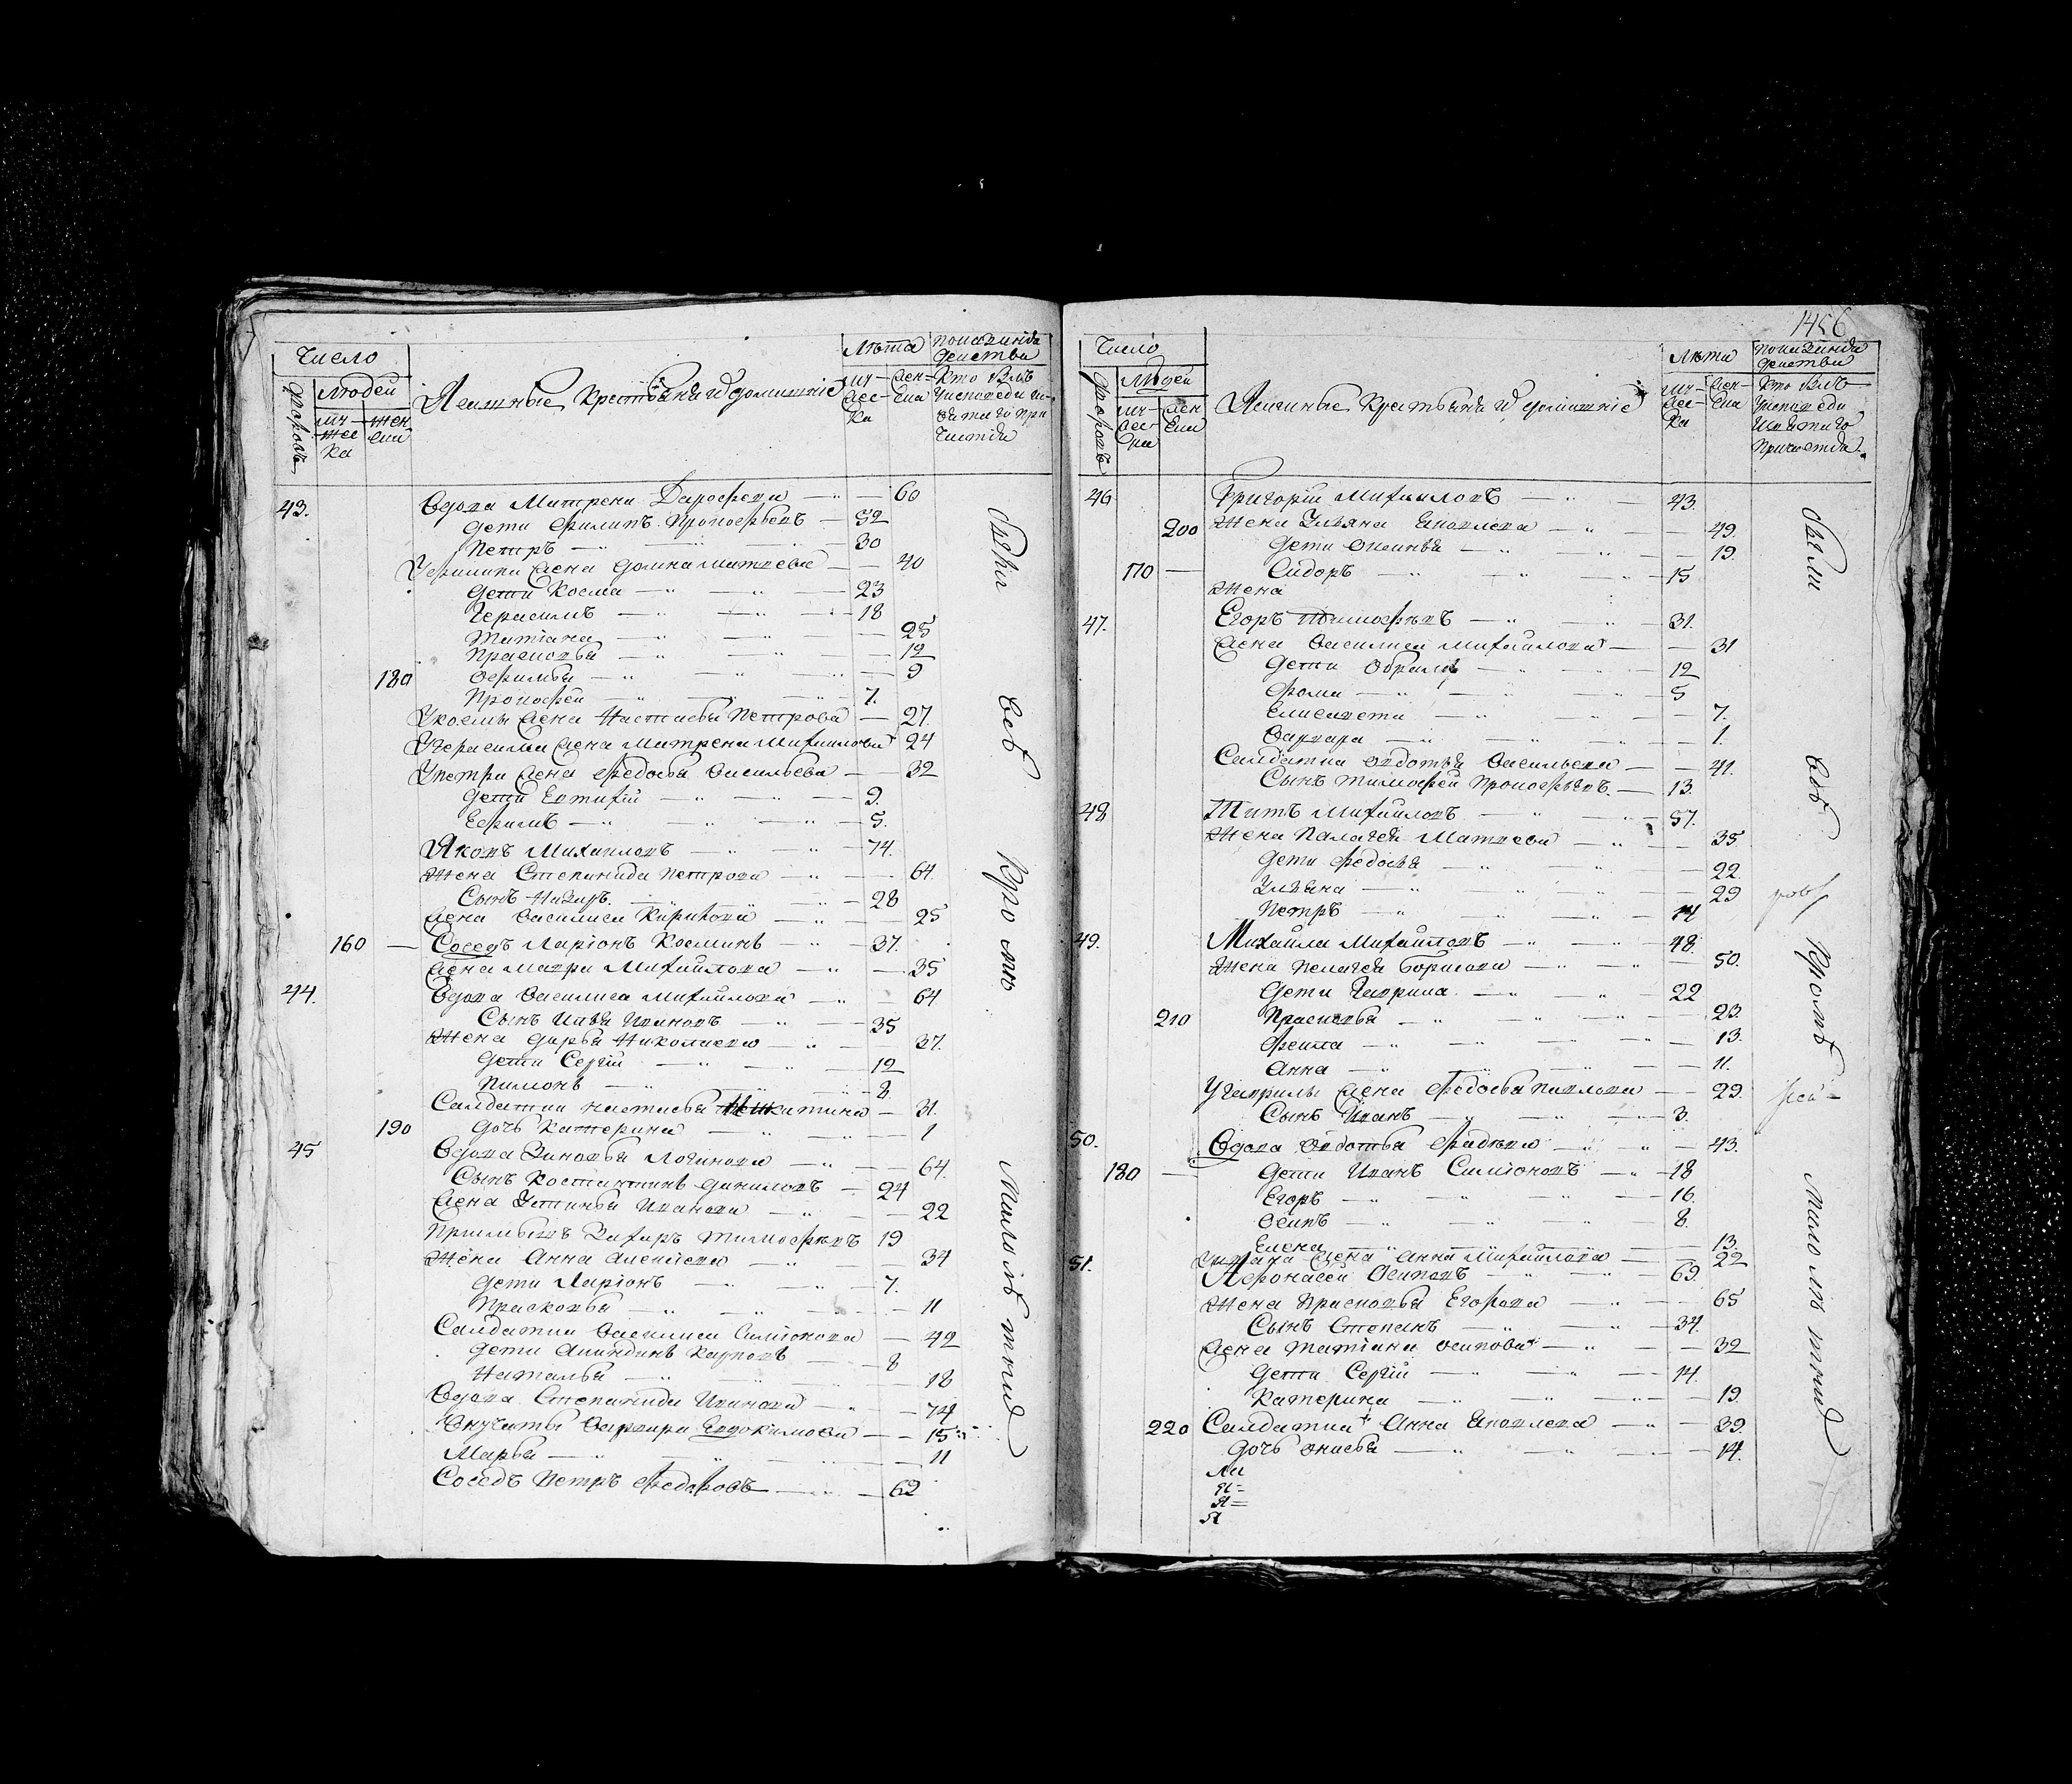 Число
Людей
Дворовъ
муческа
женска
Ясашные крестьяня и домашние
Лѣта
43. Вдова Матрена Дарофеева — 60
Дети Филипъ Прокофьевъ — 52
Петръ — 30
У Филипа жена Домна Матвеева — 40
Дети Косма — 23
Герасимъ — 18
Татiана — 25
Прасковья — 12
180 Офимья — 9
Прокофей — 7.
У Космы жена Настасья Петрова — 27.
У Герасима жена Матрена Михаилова 24
У Петра жена Федосья Васильева — 32
Дети Евтифiй — 9.
Ефимъ — 5.
Яковъ Михаиловъ — 74.
Жена Степанида Петрова — 64.
Сынъ Назаръ — 28
Жена Василиса — 25
160 — Соседъ Ларiонъ Косминъ — 37.
Жена Мавра Михаилова — 35
44. Вдова Василиса Михаилова — 64
Сынъ Илья Ивановъ — 35
Жена Дарья Николаева — 37.
Дети Сергiй — 12
Пимонъ — 8.
Салдатка Настасья Никитина — 31.
190 Дочь Катерина — 1
45 Вдова Зиновья Логинова — 64.
Сынъ Костантинъ Даниловъ — 24
Жена Устинья Иванова — 22
Прiимышъ Захаръ Тимофѣевъ 19
Жена Анна Алексiева — 34
Дети Ларiонъ — 7.
Прасковья — 11
Салдатка Василиса Симiонова — 42
Дети Карповъ 8
Наталья — 18
Вдова Степанида Иванова — 74
Внучаты Варвара Евдокимова — 15
Марья — 11
Соседъ Петръ Федоровъ — 62
были
всѣ
Кромѣ
Малолѣтныхъ
1456
Число
Людей
Дворовъ
Ясашные Крестьяня и домашнiе
Лѣта
46 Григорiй Михаиловъ — 43.
200 Жена Ульяна Яковлева — 49.
Дети Аксинья — 19.
170 — Сидоръ — 15
Жена
47. Егоръ Тимофѣевъ — 31.
Жена Василиса Михайлова — 31
Дети — 12
Фома — 5
Елисавета — 7.
Варвара — 1.
Салдатка Овдотья Васильева — 41.
Сынъ Тимофей Прокофьевъ — 13.
48 Титъ Михайловъ — 57.
Жена Палагея Матвеева — 35
Дети Федосья — 22.
Ульяна — 29
Петръ — 14
49. Михайла Михайловъ — 48.
Жена Пелагея Борисова — 50.
Дети Гаврила — 22
210 Прасковья — 23.
Фекла — 13.
Анна — 11.
У Гаврилы жена Федосья Павлова — 29.
Сынъ Иванъ — 3.
50. Вдова Овдотья Фадѣева — 43.
180 — Дети Иванъ Симiоновъ — 18
Егоръ — 16.
Осипъ — 8.
Елена — 13.
У Ивана жена Анна Михайлова — 22
51. Афонасей Осиповъ — 69.
Жена Прасковья Егорова — 65
Сынъ Степанъ — 34.
Жена Татiана Осипова — 32
Дети Сергiй — 14.
Катерина — 19.
220 Салдатка Анна Яковлева — 39.
Дочь Анисья — 14.
были
всѣ
Кромѣ
малолѣтныхъ